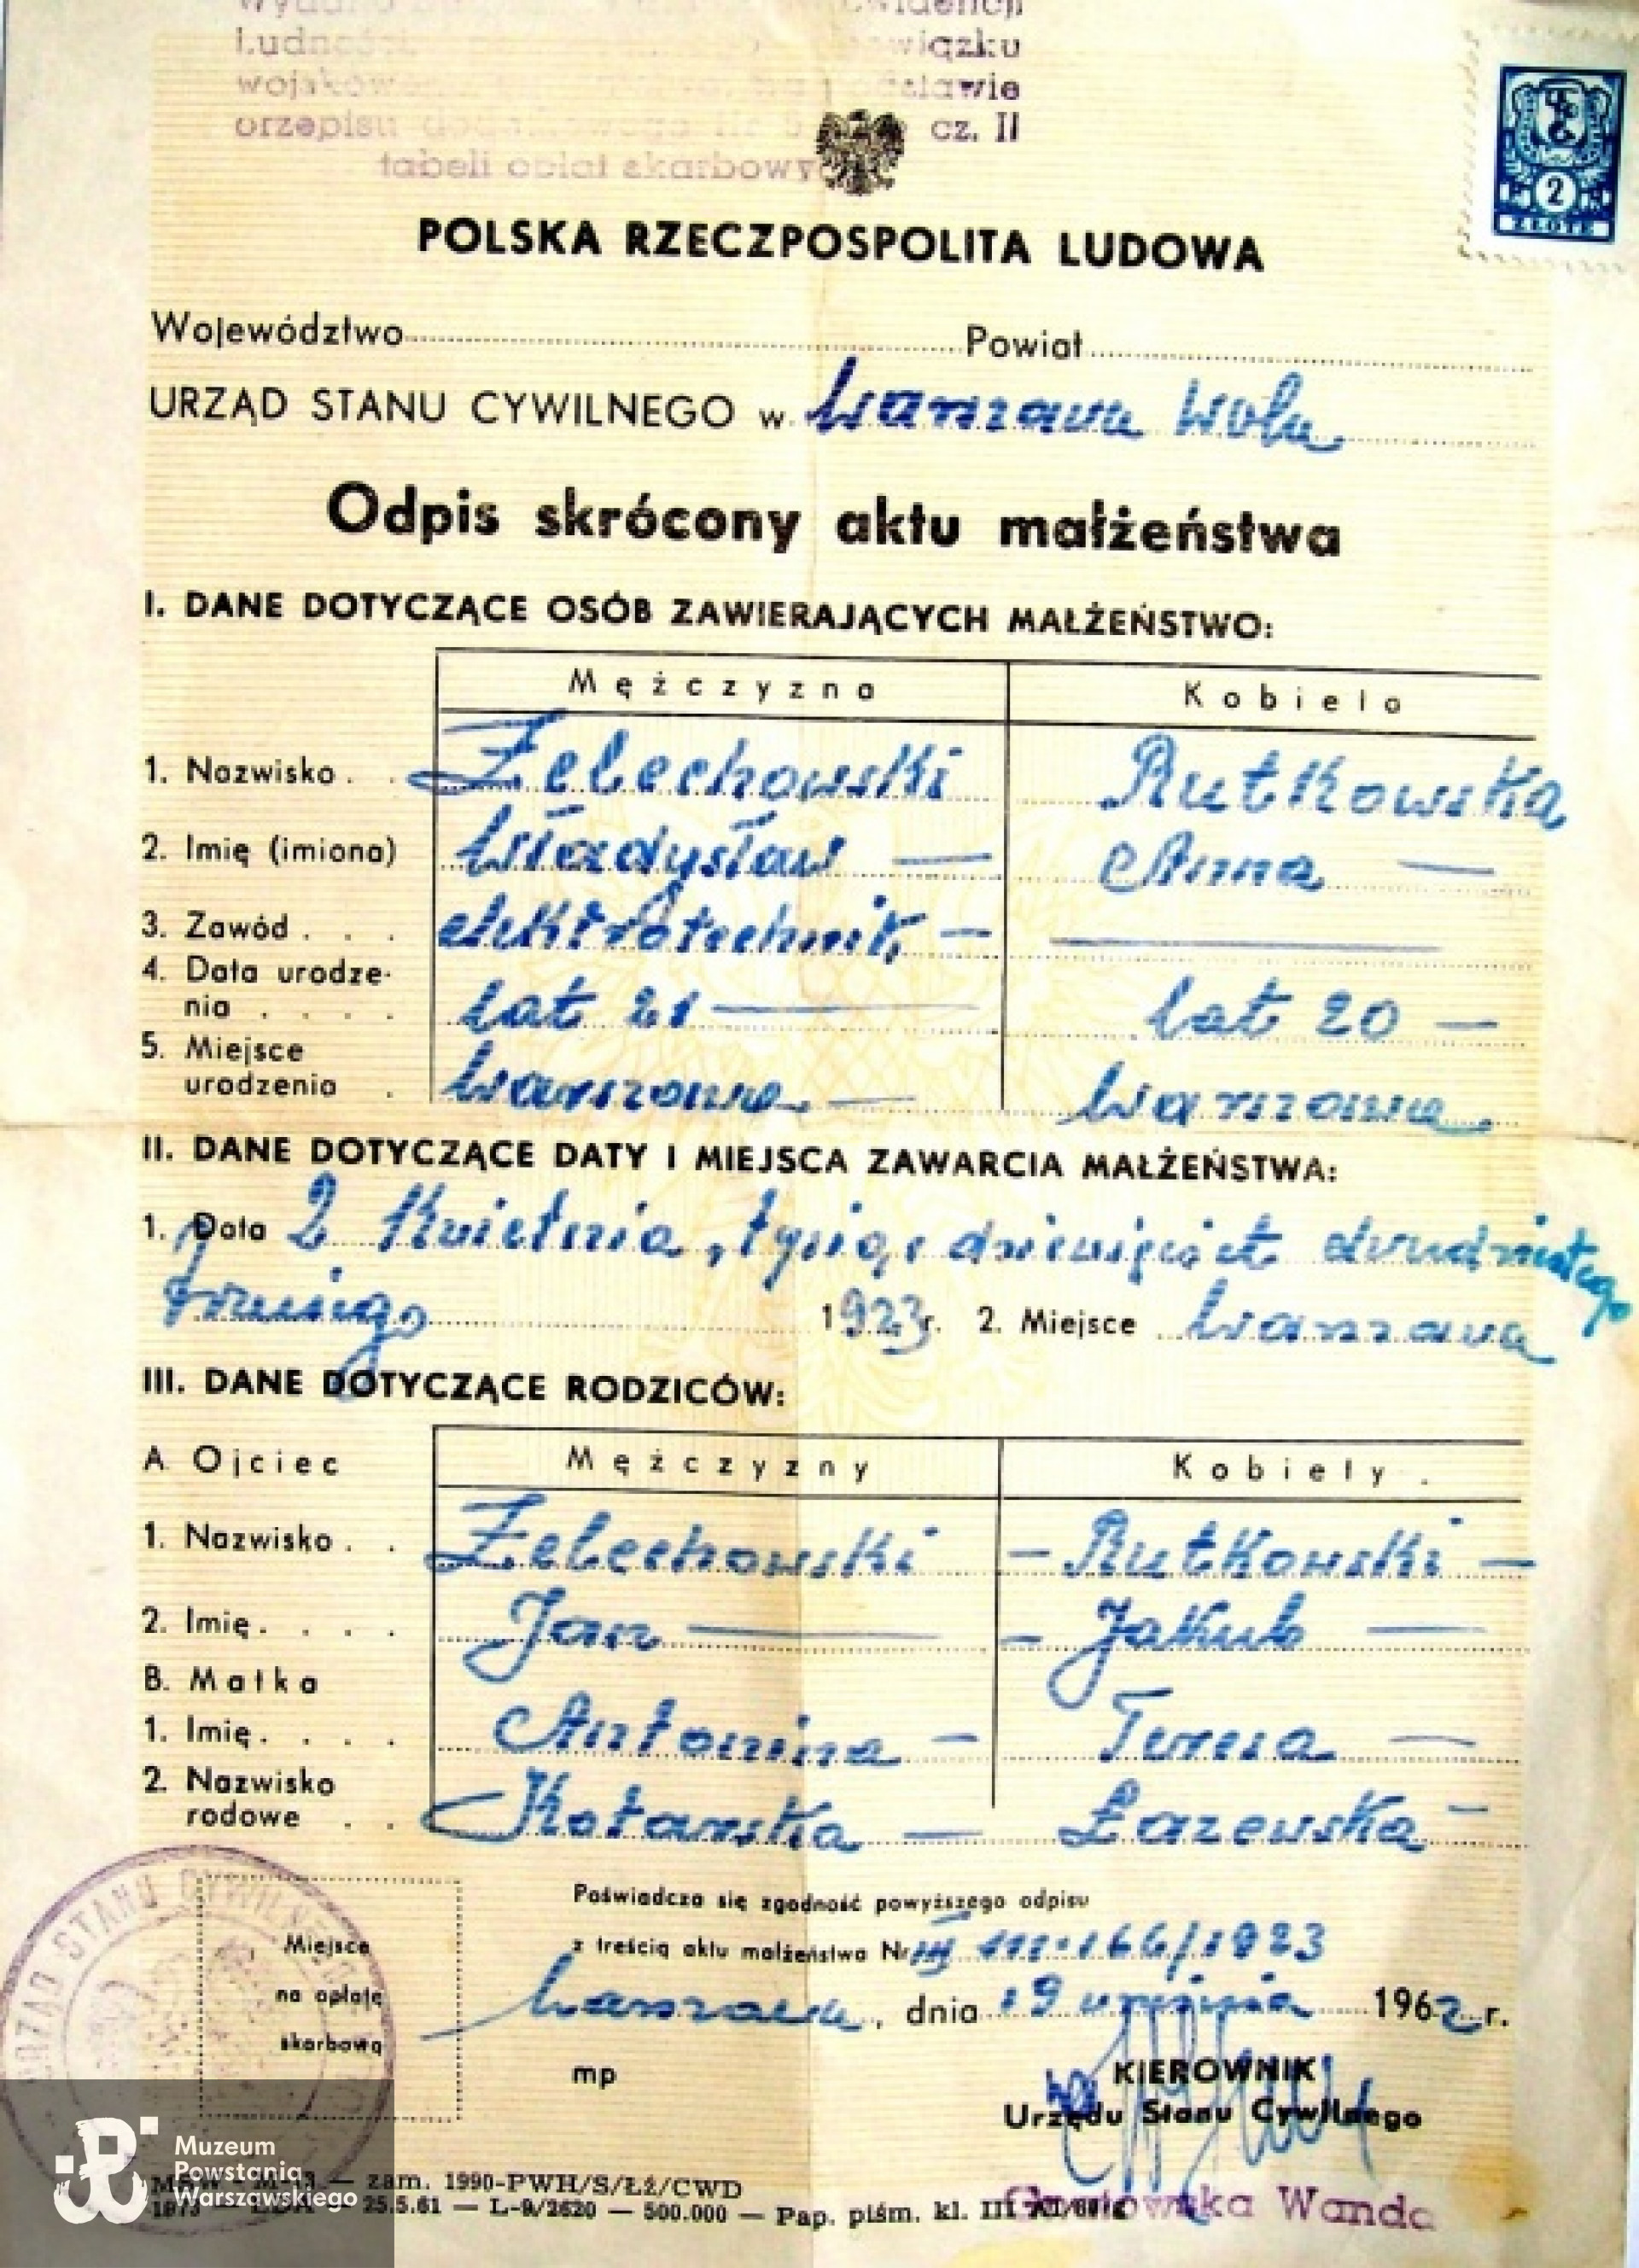 Ludności
wiązku
orzepisu cz. II
tabeli opłat skarbowych
2
ZŁOTE
POLSKA RZECZPOSPOLITA LUDOWA
Województwo Powiat
URZĄD STANU CYWILNEGO w Warszawa Wola
Odpis skrócony aktu małżeństwa
I. DANE DOTYCZĄCE OSÓB ZAWIERAJĄCYCH MAŁŻEŃSTWO:
Mężczyzna Kobieta
1. Nazwisko . . Żelechowski Rutkowska
2. Imię (imiona) Władysław — Anna —
3. Zawód . . . elektrotechnik —
4. Data urodze-
nia . . . . lat 21 — lat 20 —
5. Miejsce
urodzenia . Warszawa — Warszawa
II. DANE DOTYCZĄCE DATY I MIEJSCA ZAWARCIA MAŁŻEŃSTWA:
1. Data 2 Kwietnia, tysiąc dziewięćset dwudziestego
trzeciego 1923 r. 2. Miejsce Warszawa
III. DANE DOTYCZĄCE RODZICÓW:
A Ojciec Mężczyzny Kobiety
1. Nazwisko . . Żelechowski — Rutkowski —
2. Imię. . . . Jan — — Jakub —
B. Matka
1. Imię. . . . Antonina — Teresa —
2. Nazwisko
rodowe . . Kotarska — Łazewska —
Poświadcza się zgodność powyższego odpisu
z treścią aktu małżeństwa Nr III-166/1923
Warszawa, dnia 19 września 1962 r.
Miejsce
na opłatę
skarbową
mp
URZĄD STANU CYWILNEGO
KIEROWNIK
Urzędu Stanu Cywilnego
Wanda
zam. 1990-PWH/S/ŁŻ/CWD
25.5.61 — L-9/2620 — 500.000 — Pap. piśm. kl. III
Muzeum
Powstania
Warszawskiego